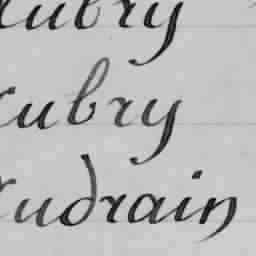 Aubry
Aubry
Audrain